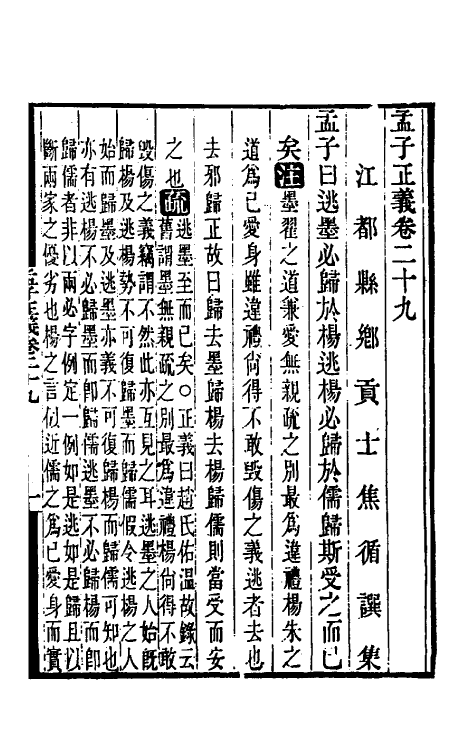 孟子正義卷二十九
江都縣鄉貢士焦循譔集
孟子曰逃墨必歸於楊逃楊必歸於儒歸斯受之而已
矣注墨翟之道兼愛無親疏之別最為違禮楊朱之
道為已愛身雖違禮尙得不敢毀傷之義逃者去也
去邪歸正故曰歸去墨歸楊去楊歸儒則當受而安
之也疏逃墨至而已矣○正義曰趙氏佑溫故錄云
舊謂墨無親疏之別最為違禮楊尙得不敢
毀傷之義竊謂不然此亦互見之耳逃墨之人始旣
歸楊及逃楊勢不可復歸墨而歸儒假令逃楊之人
始而歸墨及逃墨亦義不可復歸楊而歸儒可知也
亦有逃楊不必歸墨而卽歸儒逃墨不必歸楊而卽
歸儒者非以兩必字例定一例如是逃如是歸且以
斷兩家之優劣也楊之言似近儒之為已愛身而實
孟子正義卷二十九
一